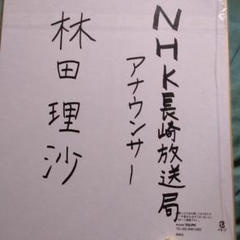 NHK長崎放送局
アナウンサー
林田理沙